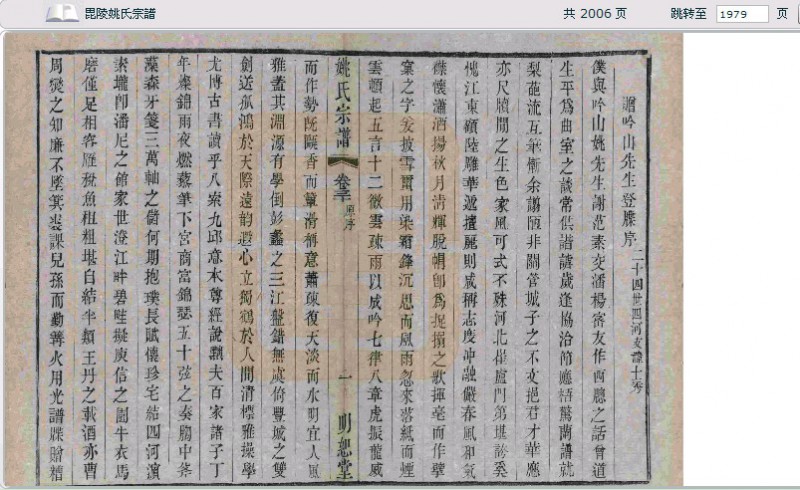 毘陵姚氏宗譜
共 2006 页
跳转至 1979 页
贈吟山先生登牒序 二十四世四河支譚十秀
僕與吟山姚先生謝范素交潘楊密友作西聽之話曾道
生平為曲室之談常供諧謔歲逢協洽節應梧南譜就
梨流互華慚余謭陋非關管城子之不交挹君才華應
亦尺牘間之生色家風可式不殊河北催盧門第堪誇奚
愧江東顧陸雕華遞擅麗則咸稱志度冲融嚴春風和氣
襟懷瀟洒揚秋月清輝脫帽卽為捉搦之歌揮毫而作擘
窠之字爰披雪用染霜鋒沉思而風雨忽來落紙而煙
雲頓起五言十二微雲疎雨以成吟七律八章虎振龍威
姚氏宗譜 卷三 原序 一 明恕堂
而作勢既颺香而蕈滑稱意蕭疎復天淡而水明宜人風
雅蓋其淵源有學倒彭蠡之三江盤錯無虞侔豐城之雙
劍送孤鴻於天際遠韵遐心立獨鶴於人間清標雅操學
尤博古書讀乎八索九邱意本尊經說黜夫百家諸子丁
年燦錦雨夜燃藜筆下宮商富錦瑟五十弦之奏胸中
藻森牙籤三萬軸之儲何期抱璞長賦懷珍宅結四河濵
素壠卽潘尼之館家世澄江畔碧畦擬庾信之園牛衣馬
磨僅足相容雁稅魚租粗堪自結半類王丹之載酒亦曹
周燮之知廉不墜箕裘課兒孫而勤篝火用光譜牒贈糟